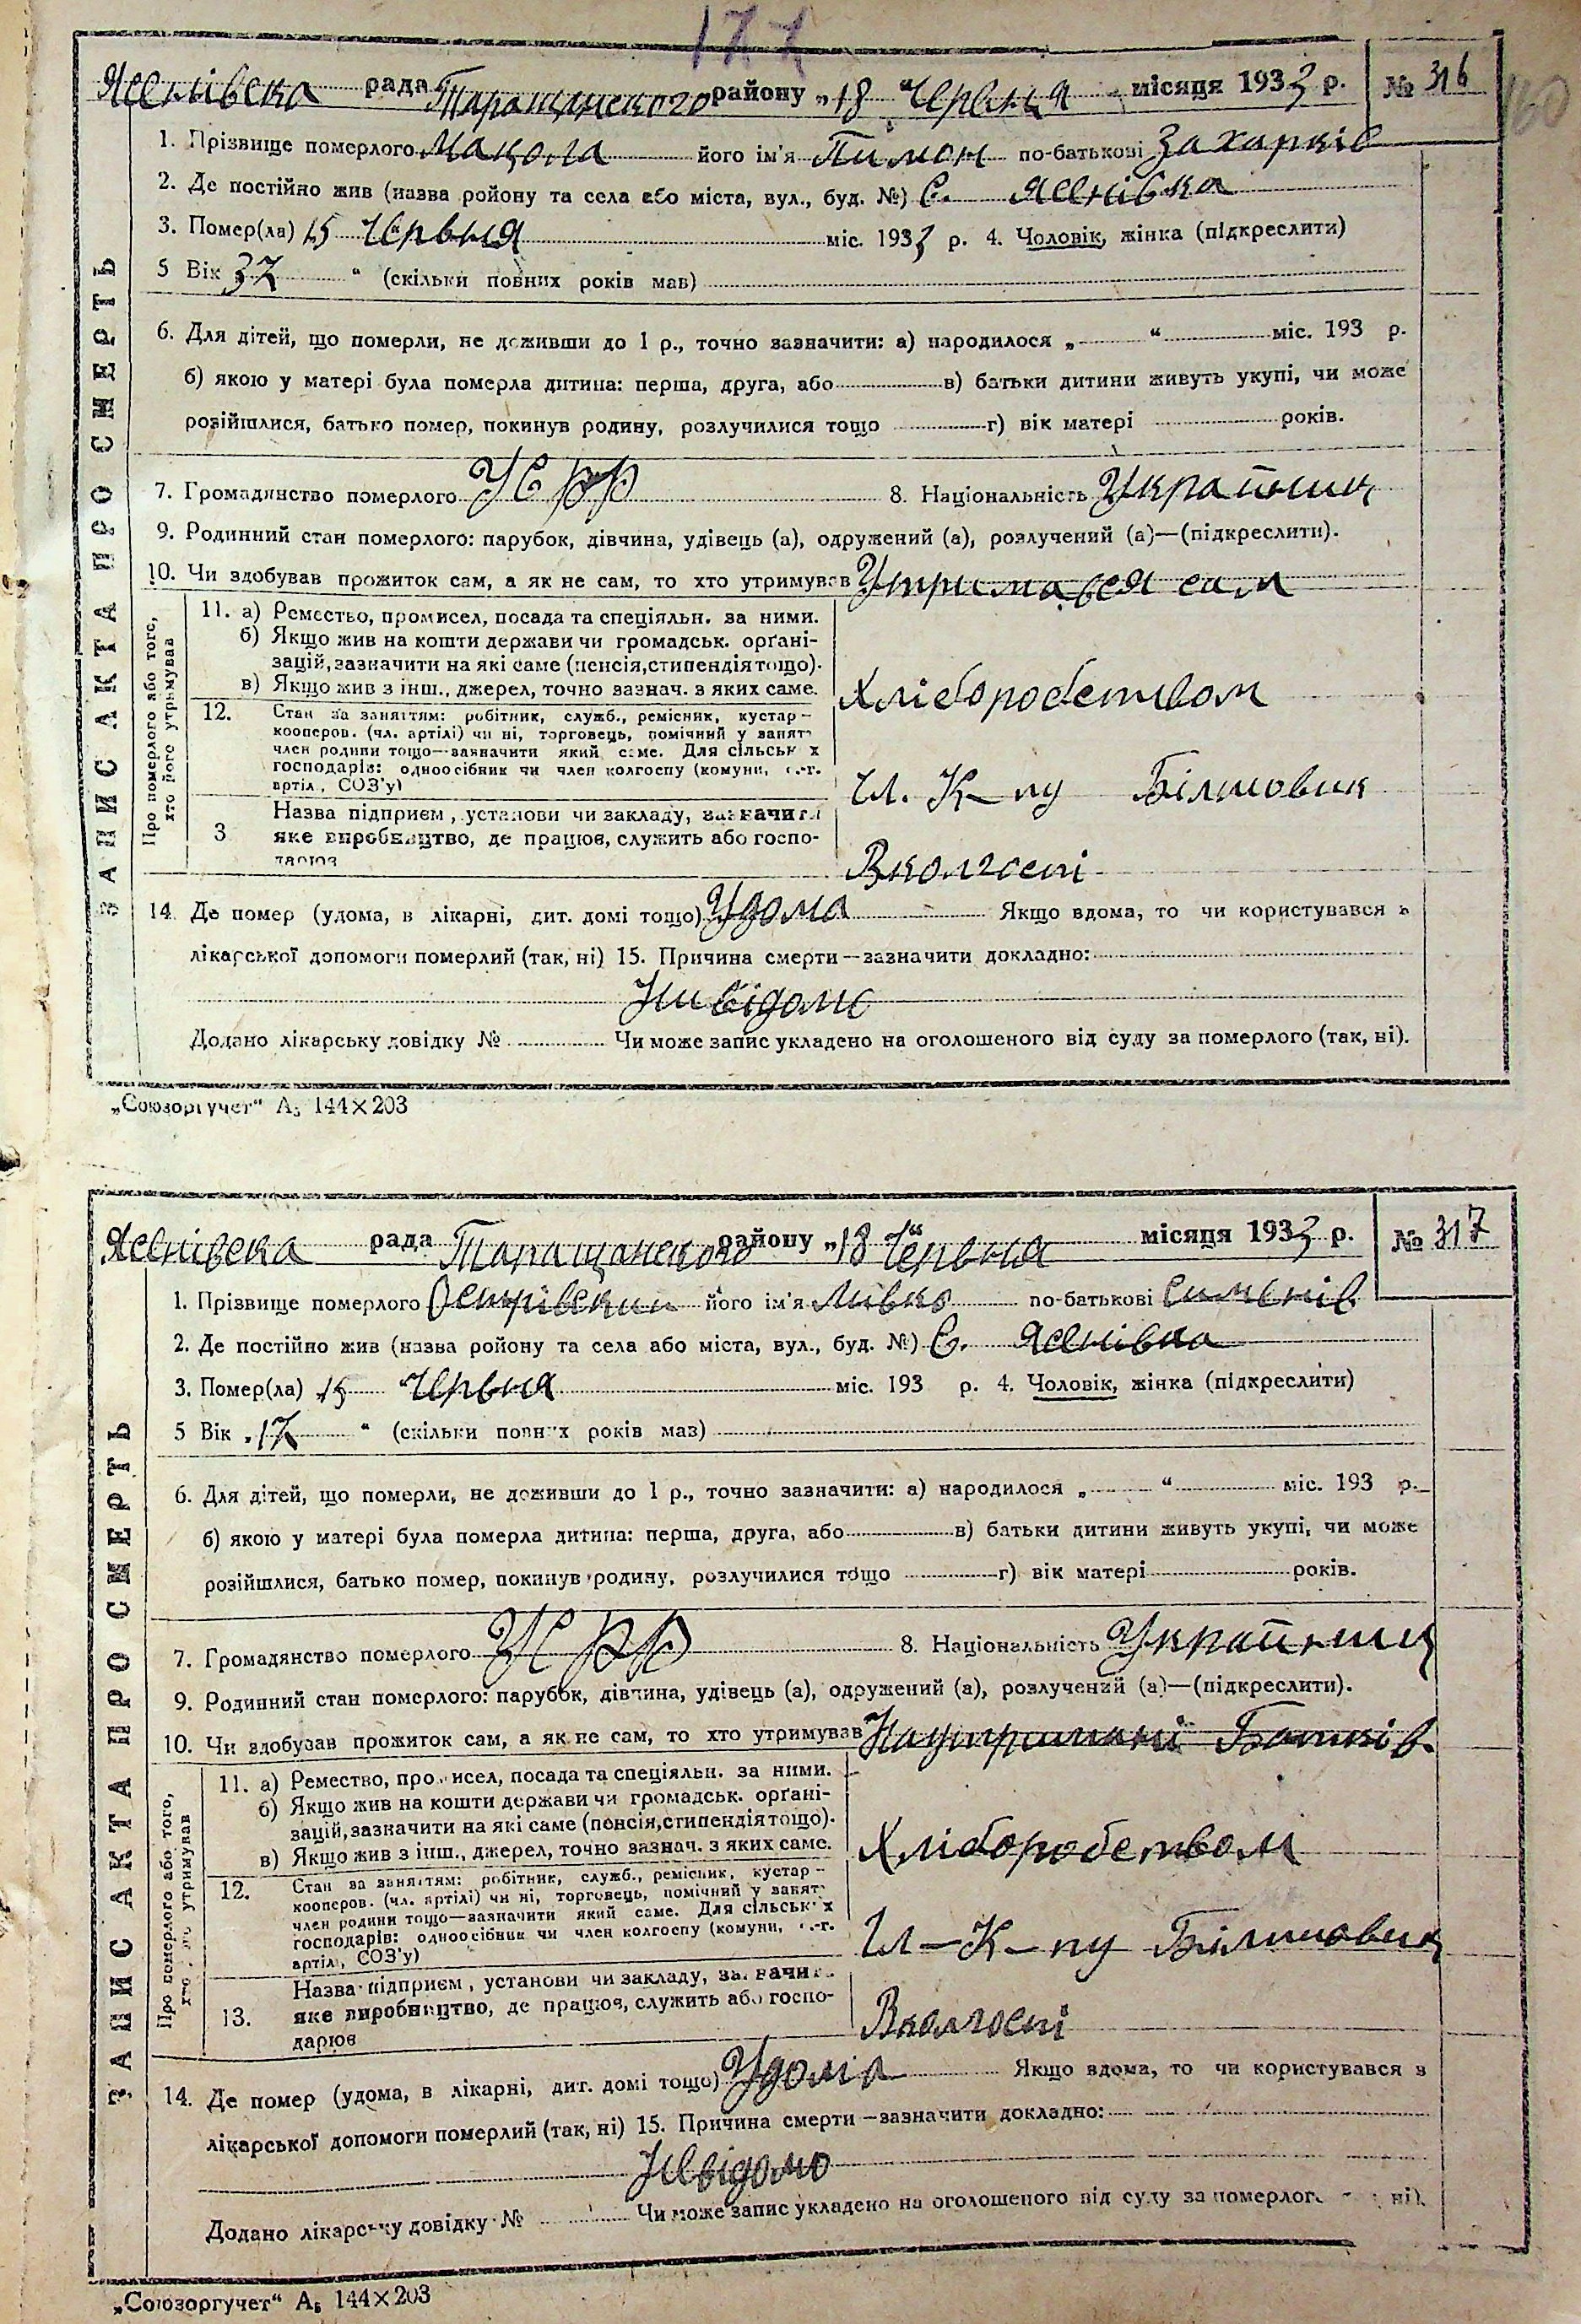 177
160
Ясенівска рада Таращанского району „18 “ Червня місяця 1933 р. № 316
1. Прізвище померлого Мацола його ім'я Пимон по-батькові Захарків
2. Де постійно жив (назва ройону та села або міста, вул., буд. №) С. Ясенівка
3. Помер(ла) 15 Червня міс. 1933 р. 4. Чоловік, жінка (підкреслити)
5 Вік 37 “ (скільки повних років мав)
6. Для дітей, що померли, не доживши до 1 р., точно зазначити: а) народилося „ “ міс. 193 р.
б) якою у матері була померла дитина: перша, друга, або в) батьки дитини живуть укупі, чи може
розійшлися, батько помер, покинув родину, розлучилися тощо г) вік матері років.
7. Громадянство померлого УСРР 8. Національність Україниц
9. Родинний стан померлого: парубок, дівчина, удівець (а), одружений (а), розлучений (а)—(підкреслити).
10. Чи здобував прожиток сам, а як не сам, то хто утримував Утримався сам
ЗАПИС АКТА ПРО СМЕРТЬ
Про померлого або того, хто його утримував
11. а) Реместьо, промисел, посада та спеціяльн. за ними.
б) Якщо жив на кошти держави чи громадськ. орґані-
зацій, зазначити на які саме (пенсія, стипендія тощо).
в) Якщо жив з інш., джерел, точно зазнач. з яких саме.
Хліборобством
12. Стан за заняттям: робітник, служб., ремісник, кустар-
кооперов. (чл. артілі) чи ні, торговець, помічний у занят
член родини тощо—зазначити який саме. Для сільськ х
господарів: одноосібник чи член колгоспу (комуни, с.-г.
артіл, СОЗ'у)
Чл. К-пу Білшовик
3 Назва підприєм, установи чи закладу, зазначити
яке виробництво, де працює, служить або госпо-
дарює
Вколгоспі
14. Де помер (удома, в лікарні, дит. домі тощо) Удома Якщо вдома, то чи користувався з
лікарської допомоги померлий (так, ні) 15. Причина смерти—зазначити докладно:
Нивідомо
Додано лікарську довідку № Чи може запис укладено на оголошеного від суду за померлого (так, ні).
„Союзоргучет“ А5 144×203
Ясенівска рада Таращанского району „18 “ Червня місяця 1933 р. № 317
1. Прізвище померлого Остривский його ім'я Ливко по-батькові Симонів
2. Де постійно жив (назва ройону та села або міста, вул., буд. №) С. Ясенівка
3. Помер(ла) 15 Червня міс. 193 р. 4. Чоловік, жінка (підкреслити)
5 Вік „17 “ (скільки повних років маз)
6. Для дітей, що померли, не доживши до 1 р., точно зазначити: а) народилося „ “ міс. 193 р.
б) якою у матері була померла дитина: перша, друга, або в) батьки дитини живуть укупі, чи може
розійшлися, батько помер, покинув родину, розлучилися тощо г) вік матері років.
7. Громадянство померлого УСРР 8. Національність Українниц
9. Родинний стан померлого: парубок, дівчина, удівець (а), одружений (а), розлучений (а)—(підкреслити).
10. Чи здобував прожиток сам, а як не сам, то хто утримував Наутримані Батків.
ЗАПИС АКТА ПРО СМЕРТЬ
Про померлого або того, хто його утримував
11. а) Ремество, промисел, посада та спеціяльн. за ними.
б) Якщо жив на кошти держави чи громадськ. орґані-
зацій, зазначити на які саме (пенсія, стипендія тощо).
в) Якщо жив з інш., джерел, точно зазнач. з яких саме.
Хліборобством
12. Стан за заняттям: робітник, служб., ремісник, кустар-
кооперов. (чл. артілі) чи ні, торговець, помічний у занят
член родини тощо—зазначити який саме. Для сільськ х
господарів: одноосібник чи член колгоспу (комуни, с.-г.
артіл, СОЗ'у)
Чл-К-пу Білшовик
13. Назва підприєм, установи чи закладу, зазначити
яке виробництво, де працює, служить або госпо-
дарює
Вколгоспі
14. Де помер (удома, в лікарні, дит. домі тощо) Удома Якщо вдома, то чи користувався з
лікарської допомоги померлий (так, ні) 15. Причина смерти—зазначити докладно:
Невідомо
Додано лікарську довідку № Чи може запис укладено на оголошеного від суду за померлого ні).
„Союзоргучет“ А5 144×203